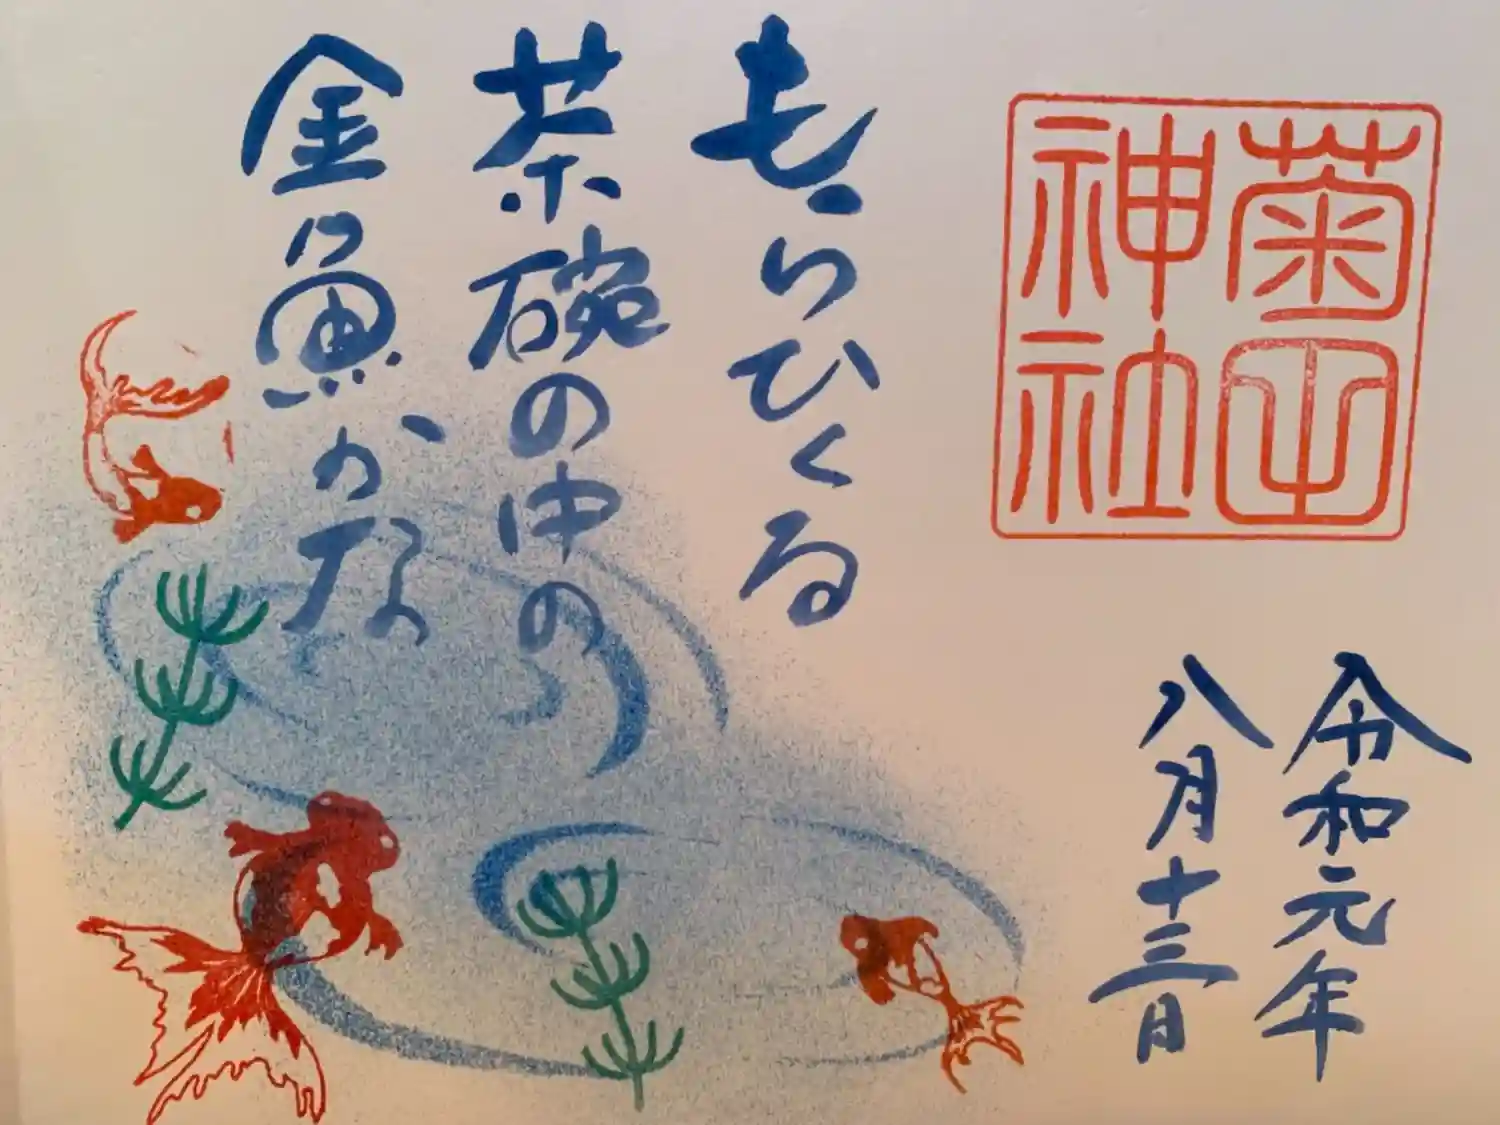 菊田
神社
令和元年
八月十三日
もらひくる
茶碗の中の
金魚かな